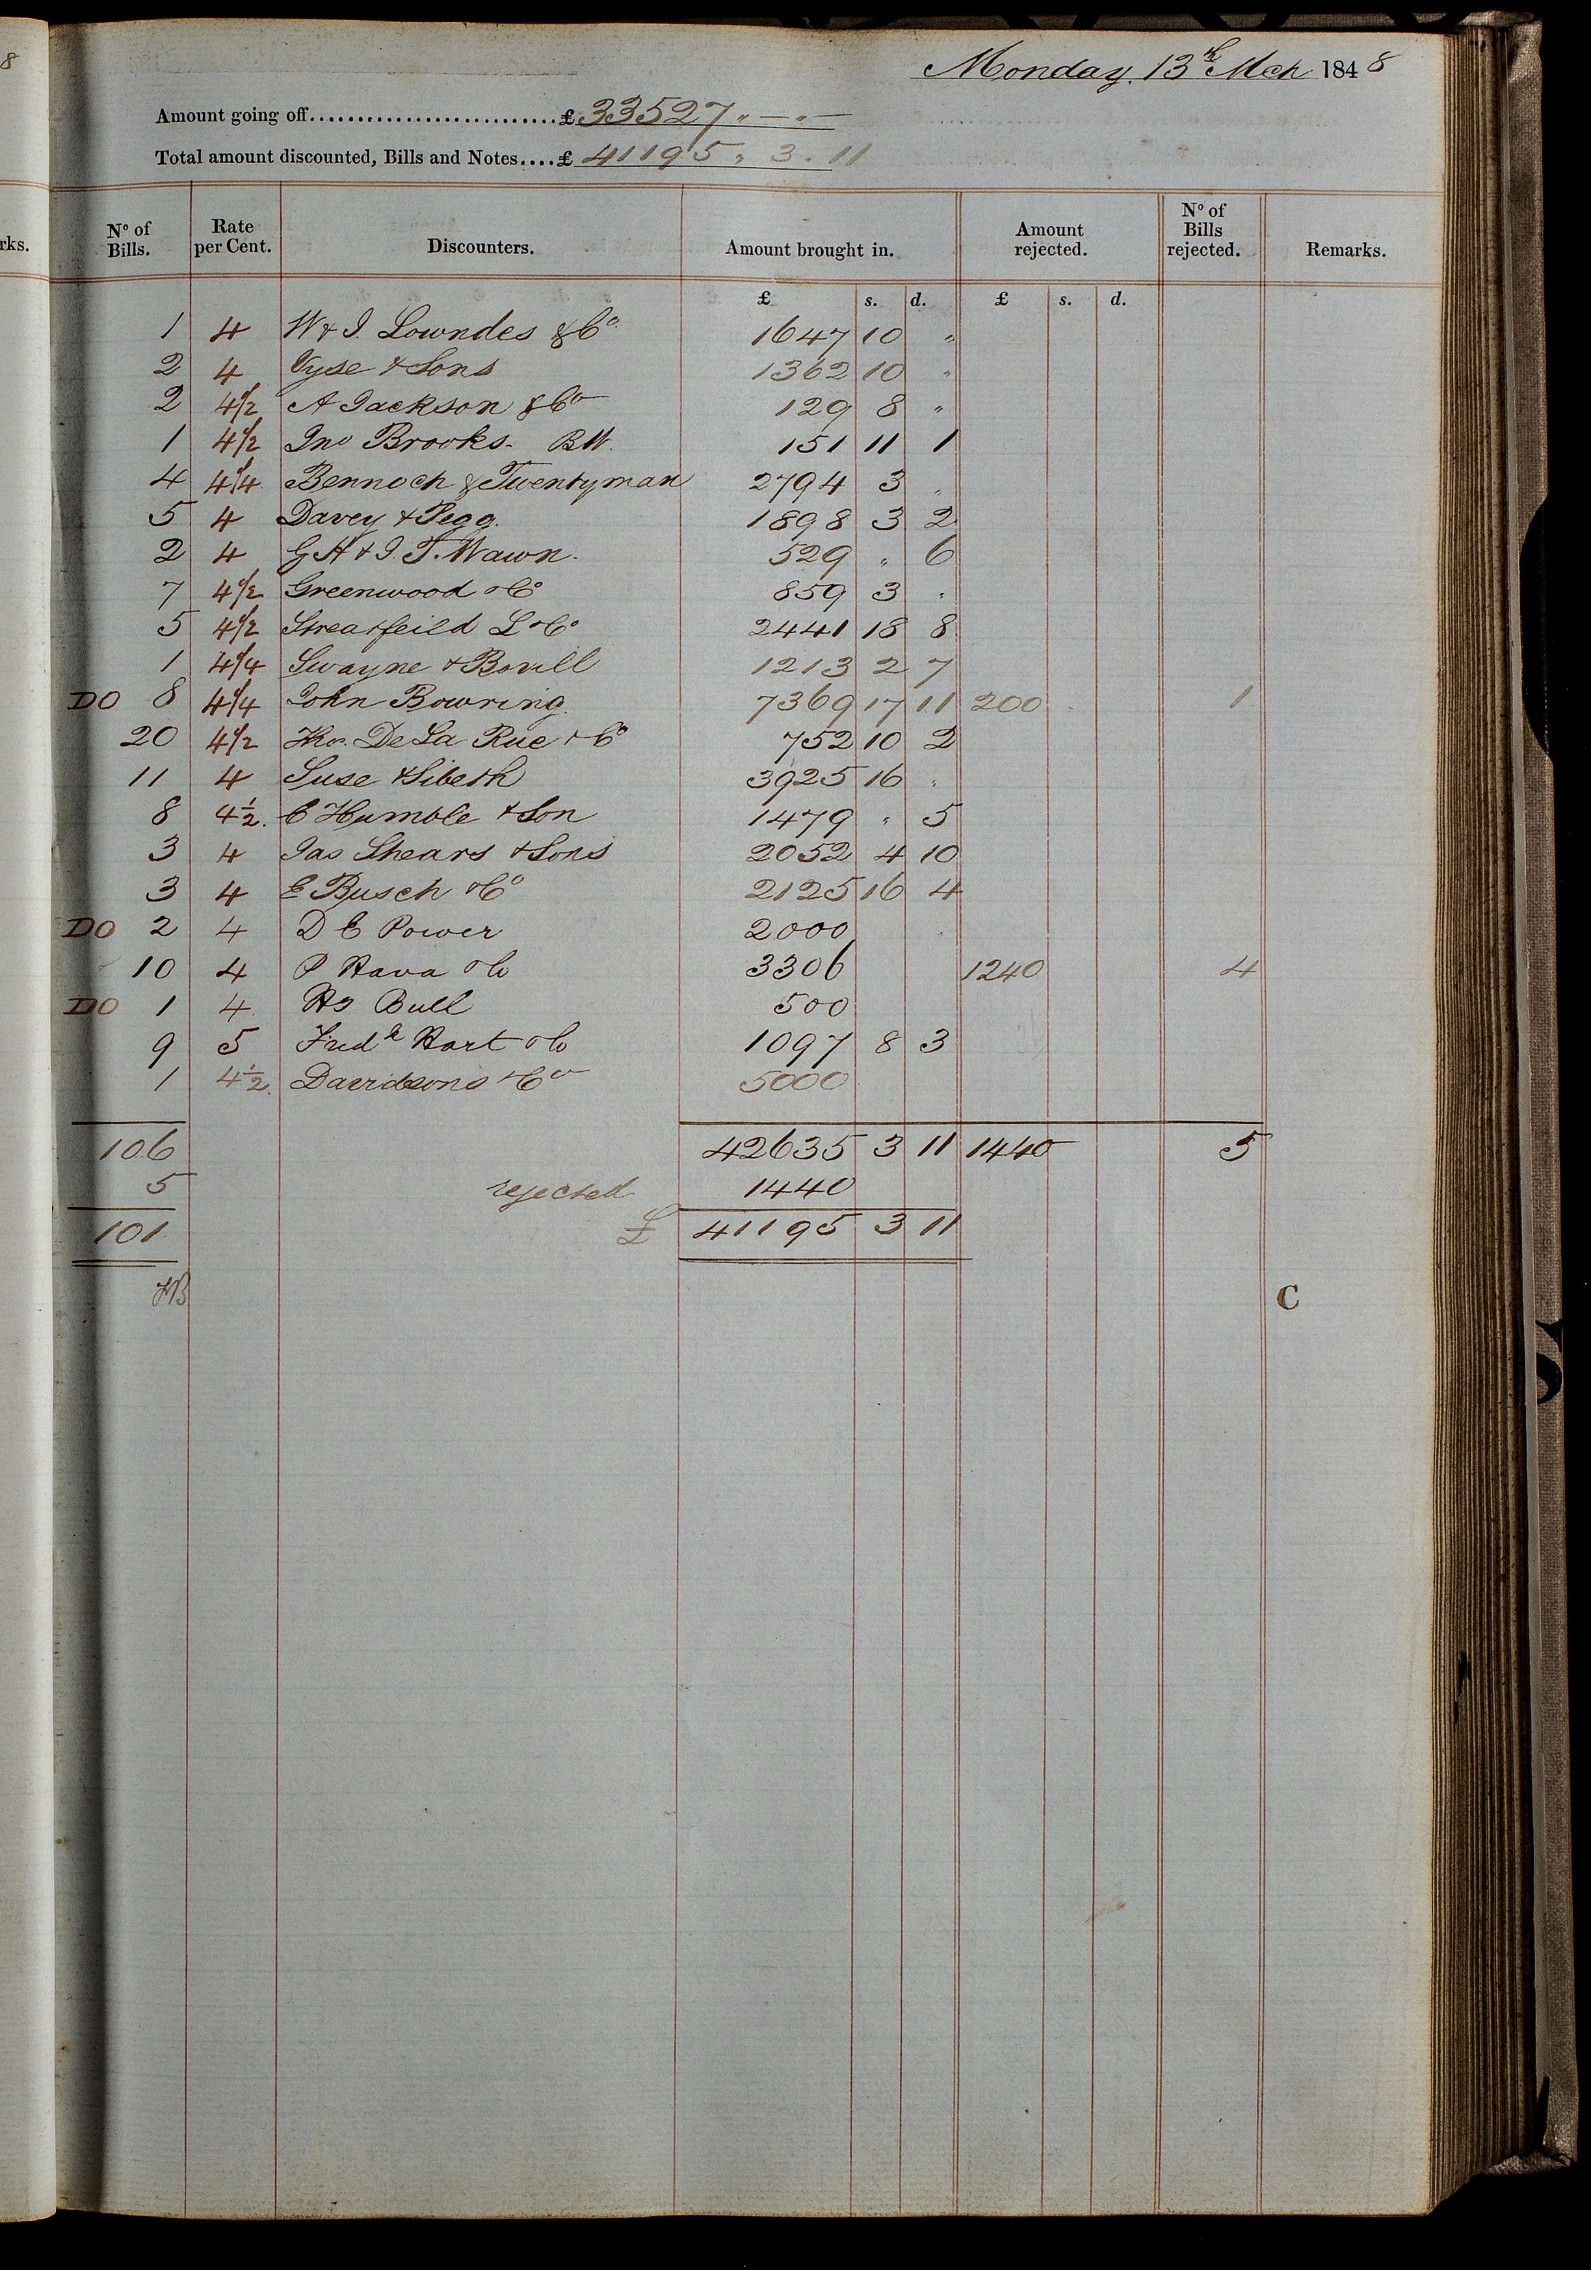 8
rks.
Monday. 13th Mch 1848
Amount going off..........................£ 33527 " — " —
Total amount discounted, Bills and Notes....£ 41195 " 3 . 11
No of Bills. Rate per Cent. Discounters. Amount brought in. Amount rejected. No of Bills rejected. Remarks.
£ s. d. £ s. d.
1 4 W & J. Lowndes & Co 1647 10 "
2 4 Vyse & Sons 1362 10 "
2 4 1/2 A Jackson & Co 129 8 "
1 4 1/2 Jno Brooks. BW. 151 11 1
4 4 1/4 Bennoch & Twentyman 2794 3 "
5 4 Davey & Pegg. 1898 3 2
2 4 G H & J. T. Wawn. 529 " 6
7 4 1/2 Greenwood & Co 859 3 "
5 4 1/2 Streatfeild L & Co 2441 18 8
1 4 1/4 Swayne & Bovill 1213 2 7
DO 8 4 1/4 John Bowring. 7369 17 11 200 1
20 4 1/2 Thos. De La Rue & Co 752 10 2
11 4 Suse & Sibeth 3925 16 "
8 4 1/2. C Humble & Son 1479 " 5
3 4 Jas Shears & Sons 2052 4 10
3 4 E Busch & Co 2125 16 4
DO 2 4 D E Power 2000
10 4 P Hava & Co 3306 1240 4
DO 1 4. Hy Bull 500
9 5 Fredk Hart & Co 1097 8 3
1 4 1/2. Davidsons & Co 5000
106 42635 3 11 1440 5
5 rejected 1440
101 £ 41195 3 11
HB
C